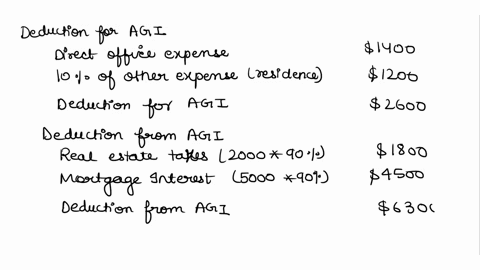 Deduction for AGI
Direct office expense $1400
10% of other expense (residence) $1200
Deduction for AGI $2600
Deduction from AGI
Real estate taxes (2000*90%) $1800
Mortgage Interest (5000*90%) $4500
Deduction from AGI $630(